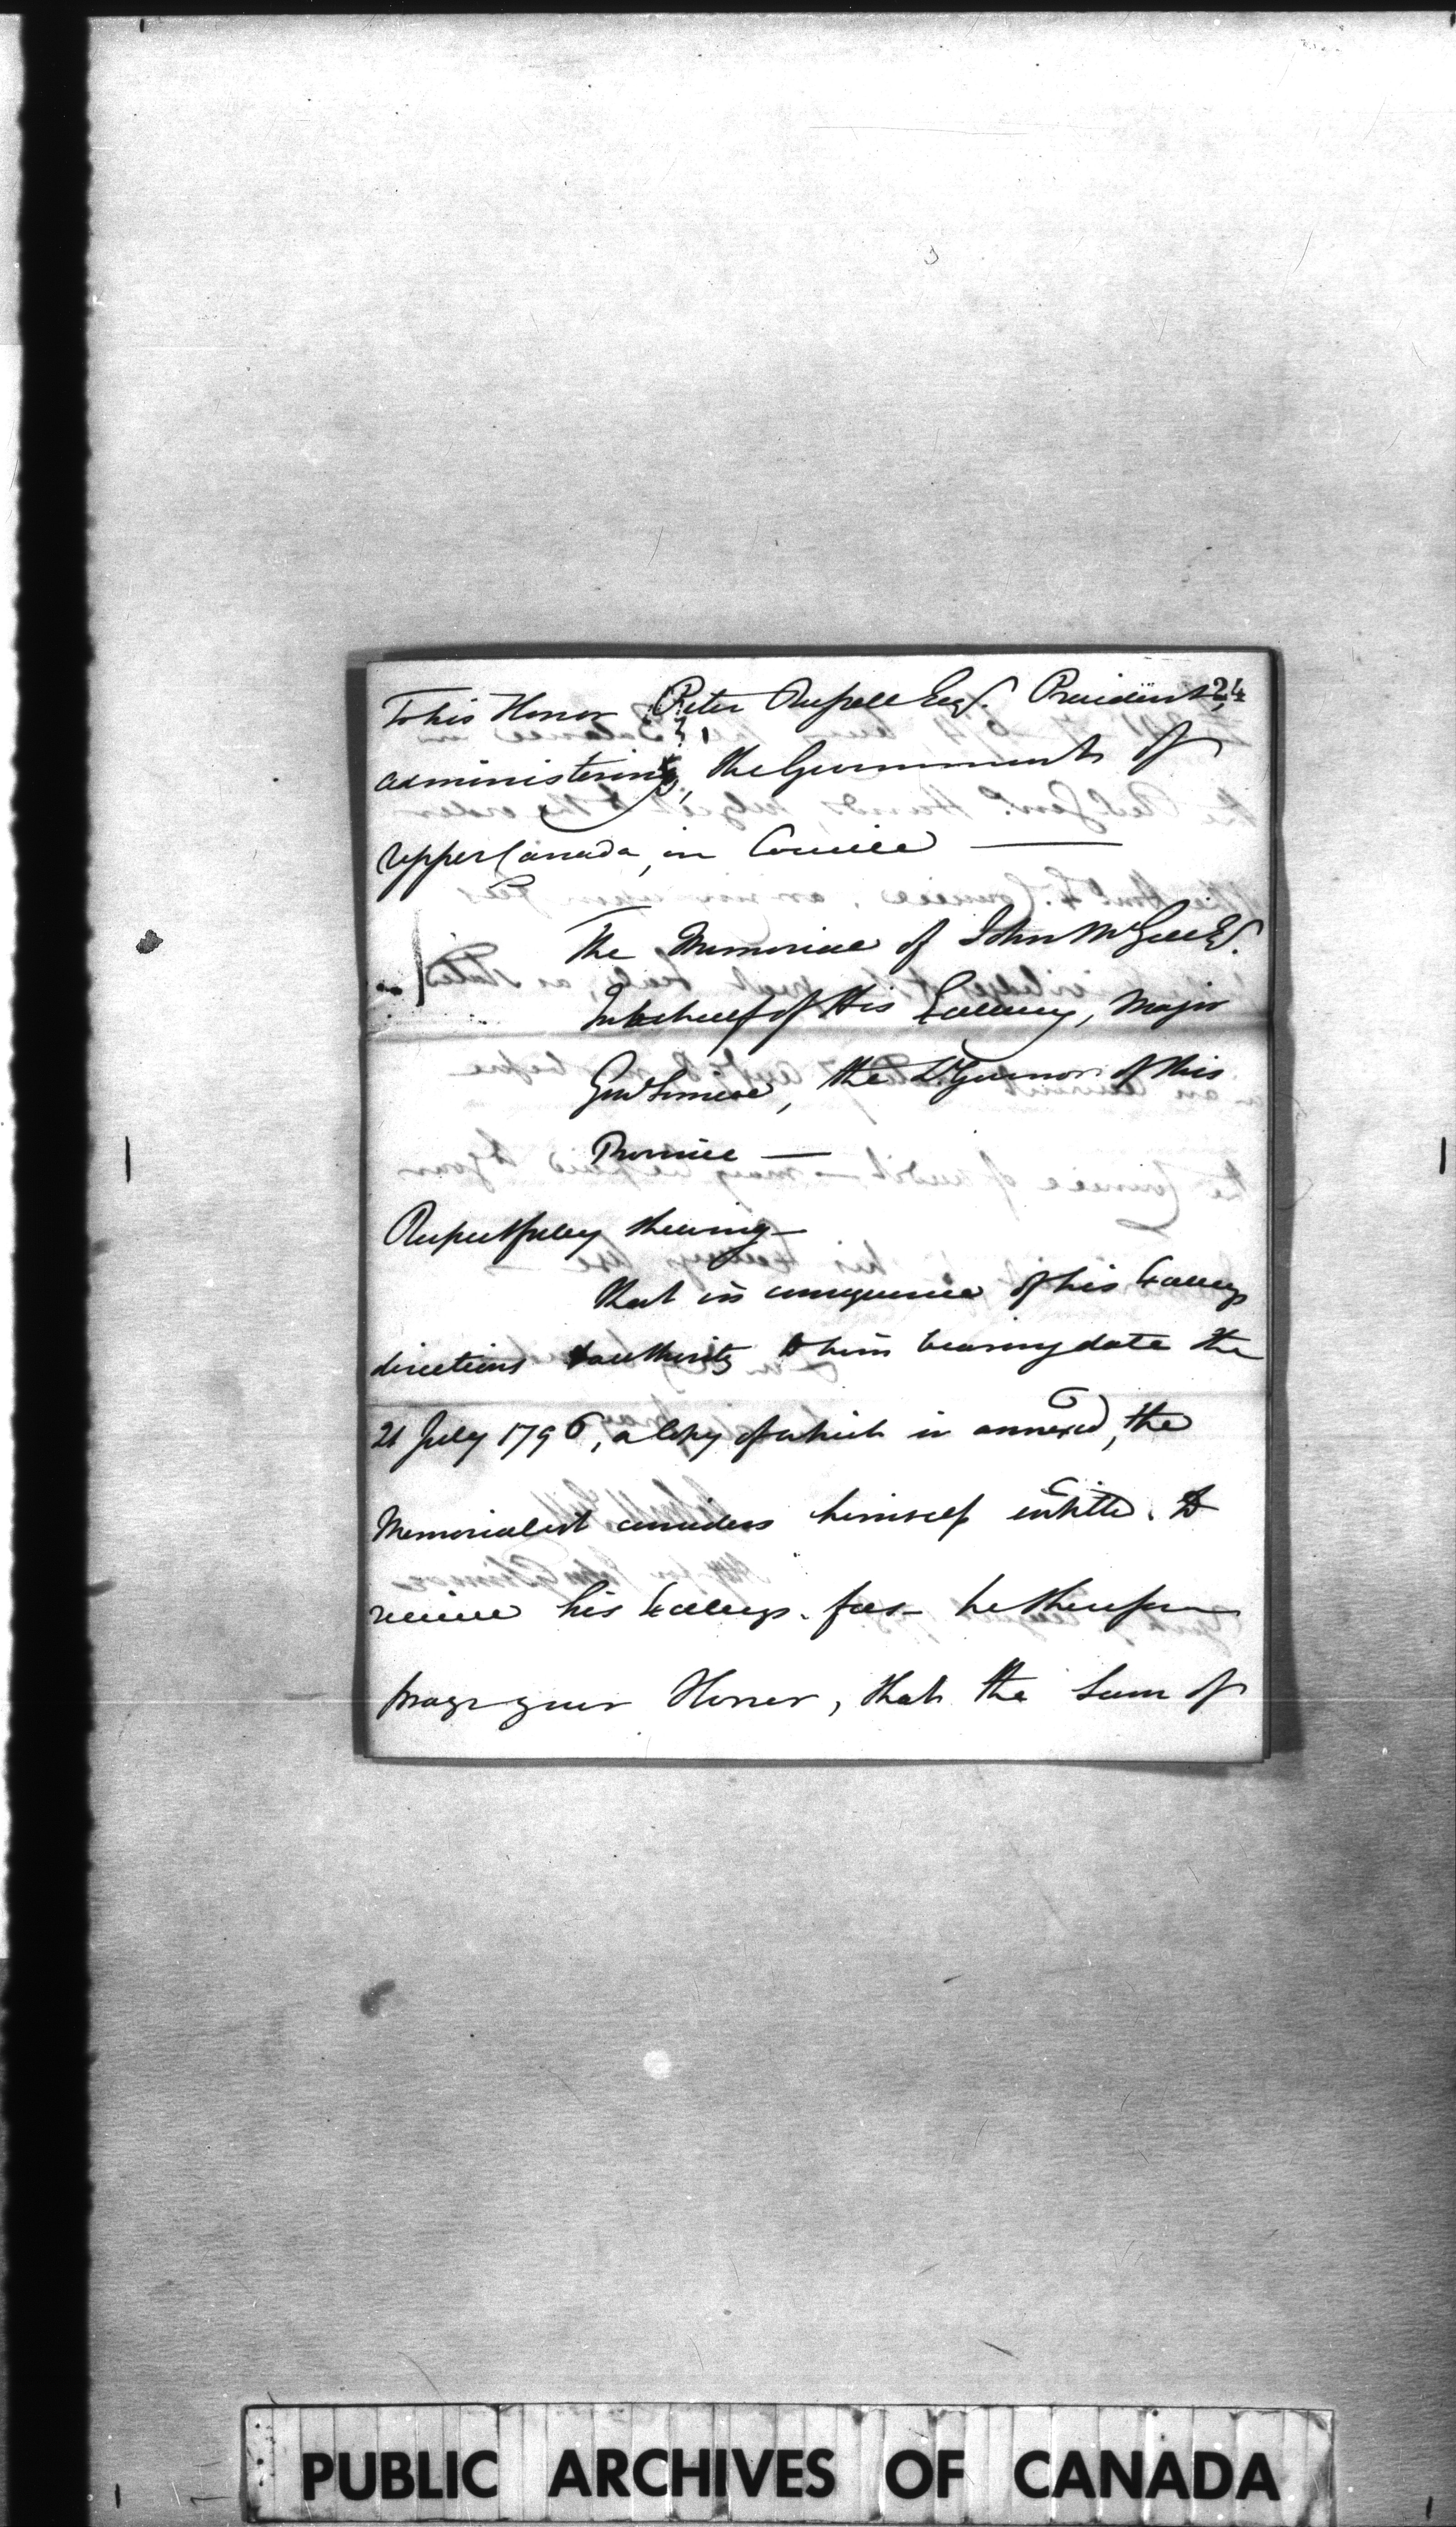 To his Honor Peter Russell Esqr. President, 24
administering, the Government of
Upper Canada, in Council —
The Memorial of John McGill Esr.
In behalf of His Excellency, Major
Genl Simcoe, the Lt Governor of this
Province —
Respectfully shewing—
that in consequence of his Excellencys
directions & authority to him bearing date the
21 July 1796, a Copy of which is annexed, the
Memorialist considers himself entitled to
receive his Excellencys. fees he therefore
prays your Honor, that the Sum of
PUBLIC ARCHIVES OF CANADA